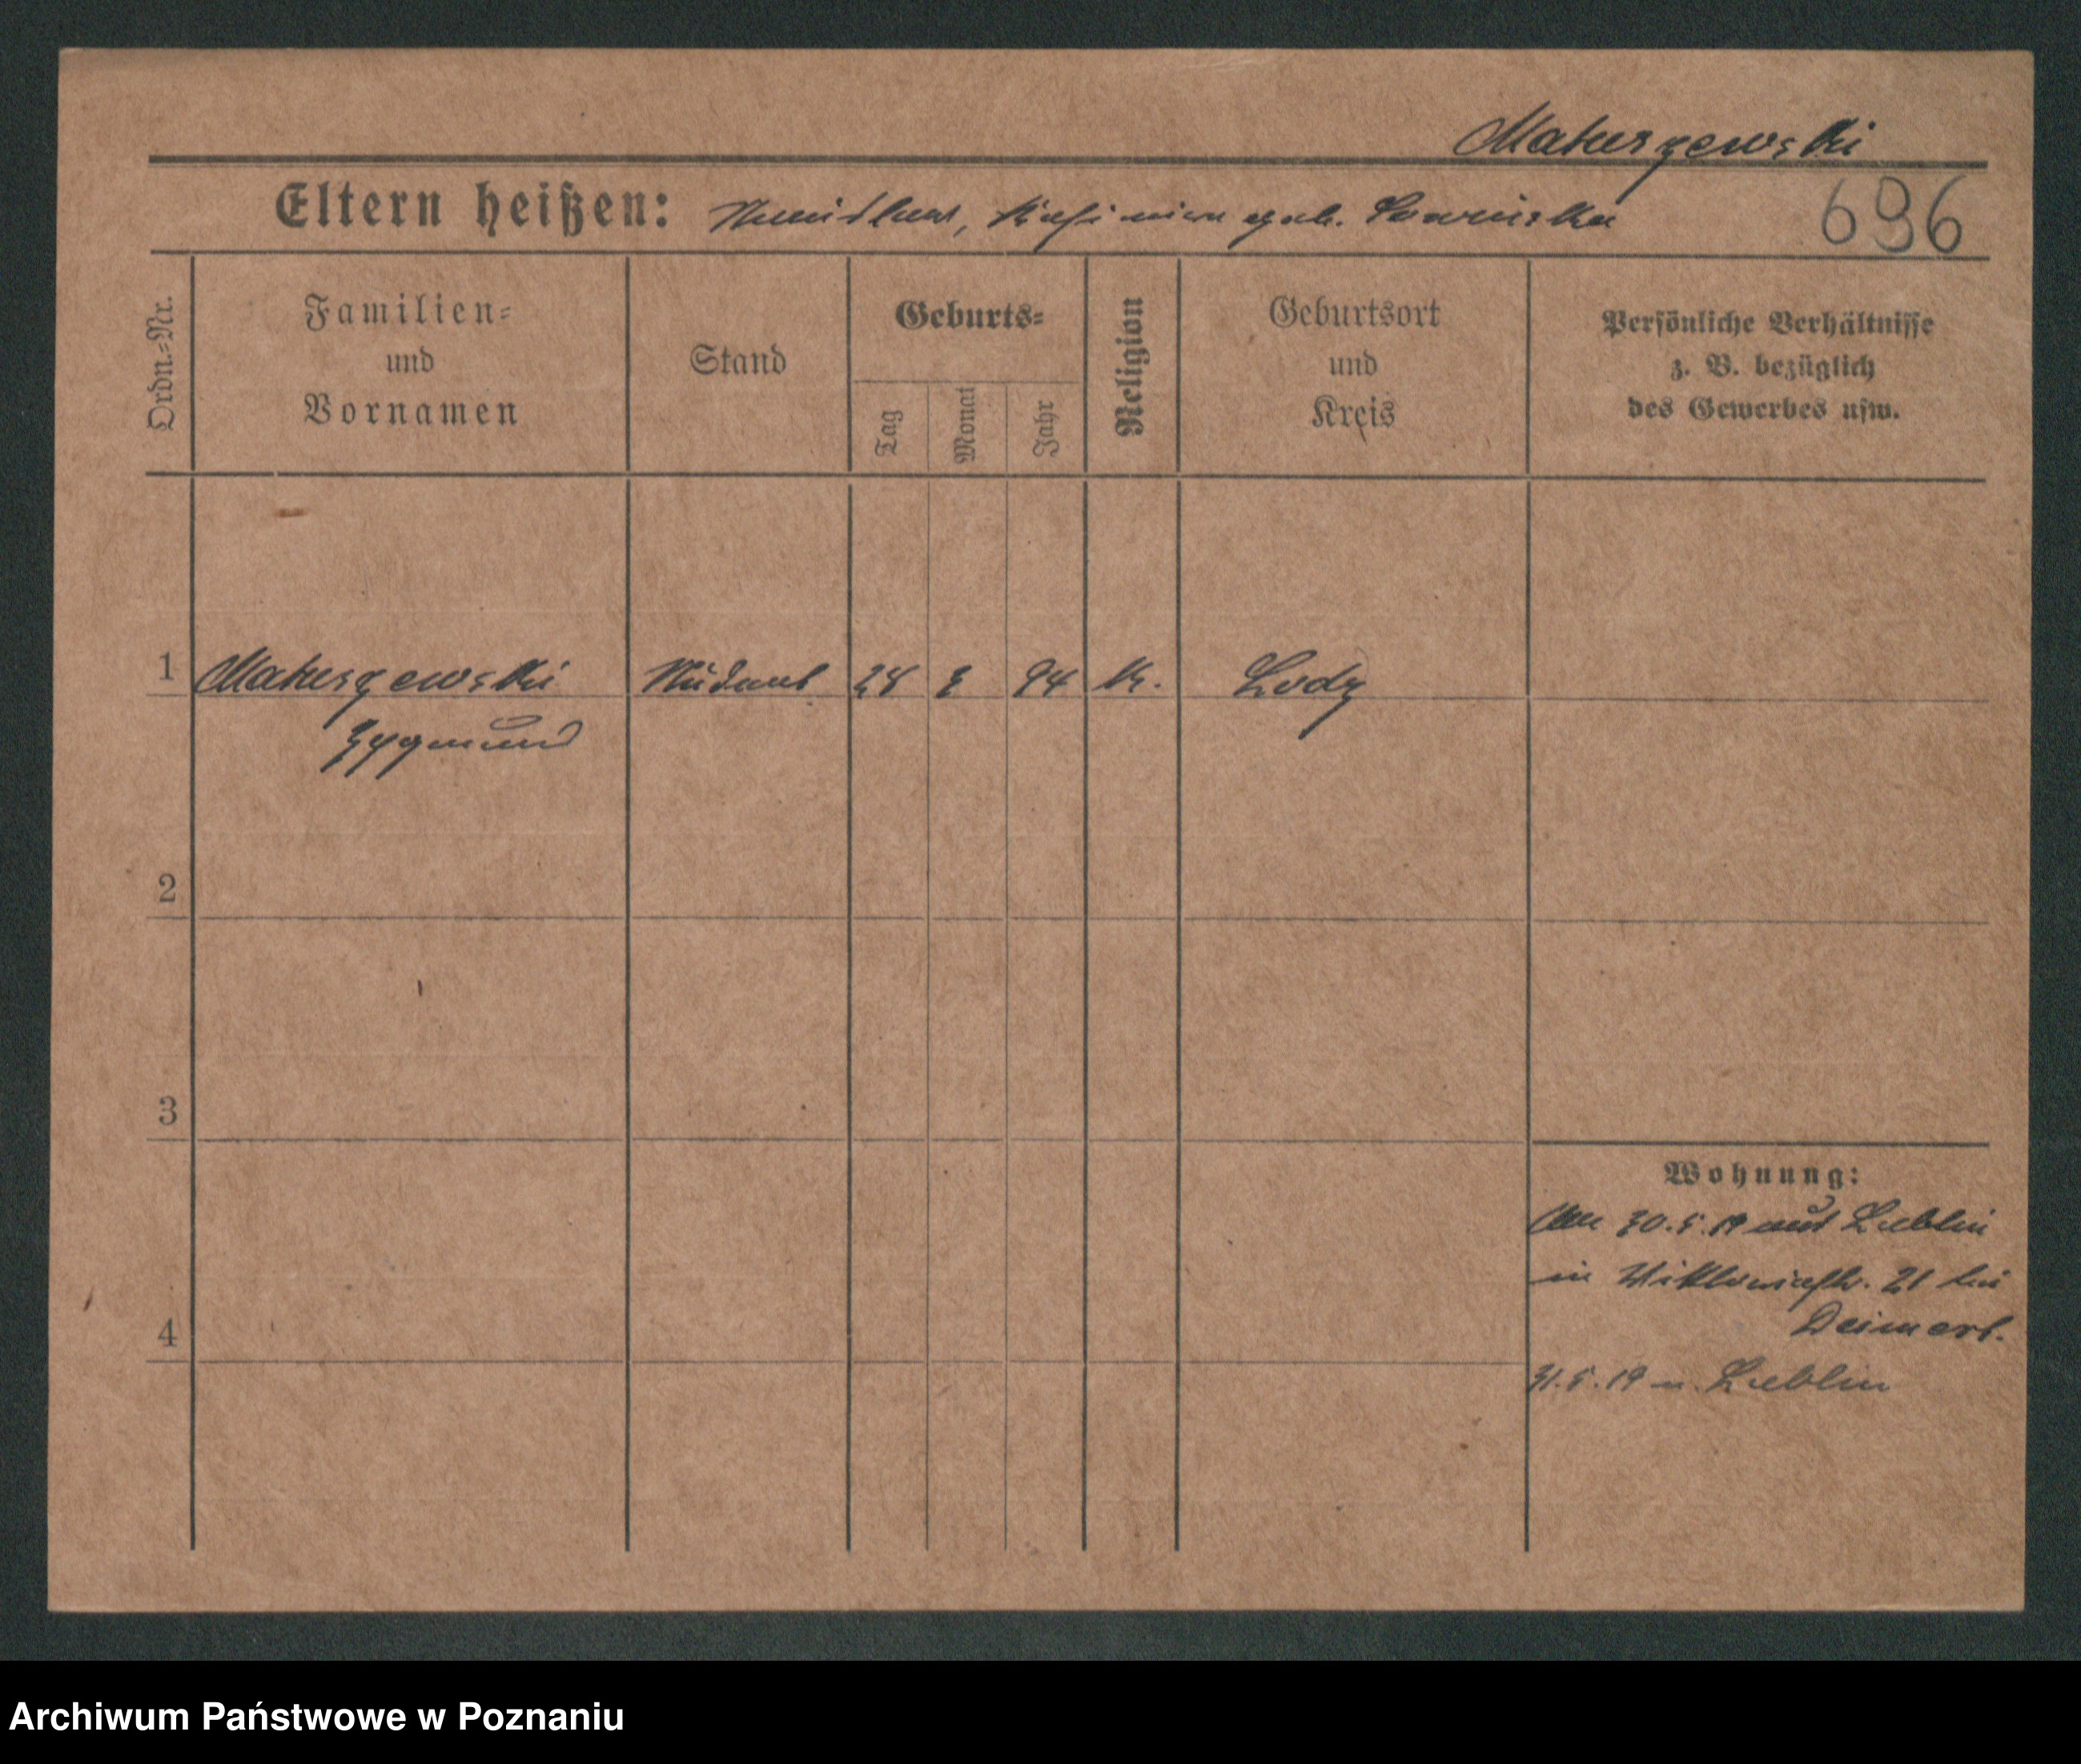 Matuszewski
Eltern heißen: geb. 696
Ordn.=Nr.
Familien=
und
Vornamen
Stand
Geburts=
Tag
Monat
Jahr
Religion
Geburtsort
und
Kreis
Persönliche Verhältnisse
z. B. bezüglich
des Gewerbes usw.
1 Matuszewski Student 28 94 K. Lodz
Zygmund
2
3
4
Wohnung:
30.5.19 aus Lublin
in Wiktoriastr. 21 bei
31.5.19 n. Lublin
Archiwum Państwowe w Poznaniu